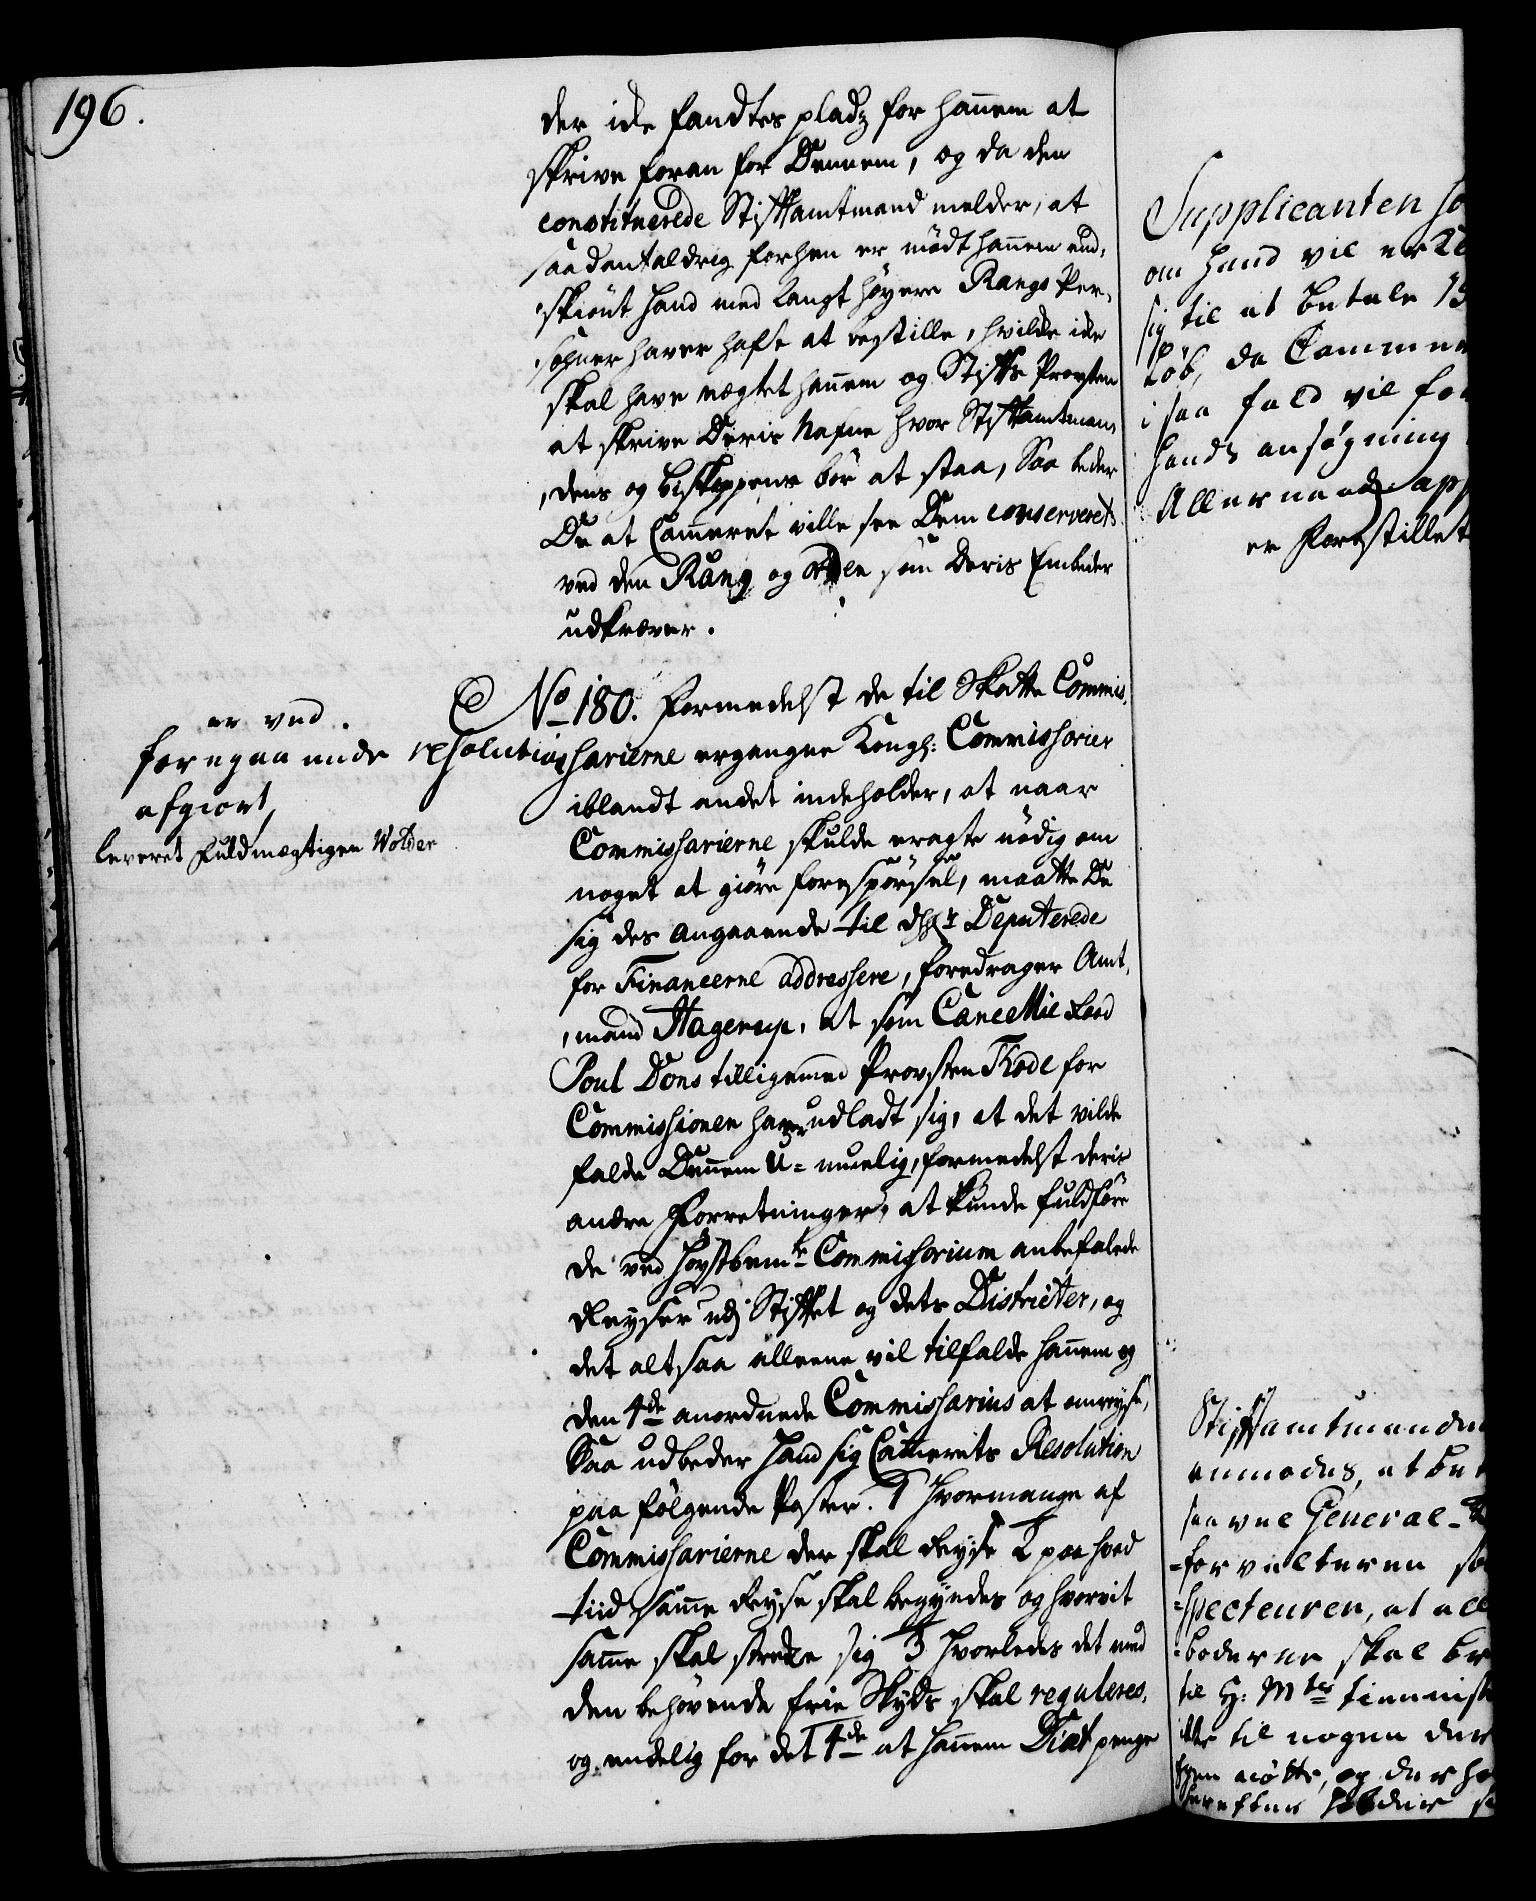 196.
der icke fandtes pladz for hannem at
skrive foran for Dennem, og da den
constituerede Stiftamtmand melder, at
saadant aldrig forhen er mödt hannem end-
skiönt hand med langt høyere Rangs Per-
sohner haver haft at bestille, hvilcke icke
skal have nægtet hannem og Stifts Provsten
at skrive Deris Nafne hvor Stiftamtman-
dens og Biskoppens bör at staa, Saa beder
De at Cammeret ville see Dem conserverets
ved den Rang og orden som deris Embeder
udkræver.
er ved
foregaaende resolution
afgiort,
leveret Fuldmægtigen Wolder
No 180. Formedelst de til Skatte Commis-
sarierne ergangne Kongl: Commissorier
iblandt andet indeholder, at naar
Commissarierne skulde eragte nödig om
noget at giöre forespörsel, maatte De
sig des angaaende til dhr Deputerede
for Financerne addressere, foredrager Amt-
mand Hagerup, at som Cancellie Raad
Poul Dons tilligemed Provsten Kode for
Commissionen haver udladt sig, at det vilde
falde Dennem U-muelig, formedelst deris
andre Forretninger, at kunde fuldföre
de ved høystbemte Commissorium anbefalede
Reyser udj Stiftet og dets Districter, og
det altsaa alleene vil tilfalde hannem og
den 4de anordnede Commissarius at omreyse,
Saa udbeder hand sig Camerets Resolution
paa følgende Poster. 1 hvormange af
Commissarierne der skal Reyse 2 paa hvad
tiid samme Reyse skal begyndes og hvorvit
samme skal strecke sig 3 hvorledes det med
den behøvende frie Skyds skal reguleres,
og endelig for det 4de at hannem Diæt penge
Supplicanten
om hand vil
sig til at betale
Löb, da Cammer
i saa fald vil
hands ansøgning
Allernaad
er Forestillet
Stiftamtmanden
anmodes, at
saavel General-
-forvalteren
-specteuren, at
-boderne skal
til H: Mts tienniste
icke til nogen